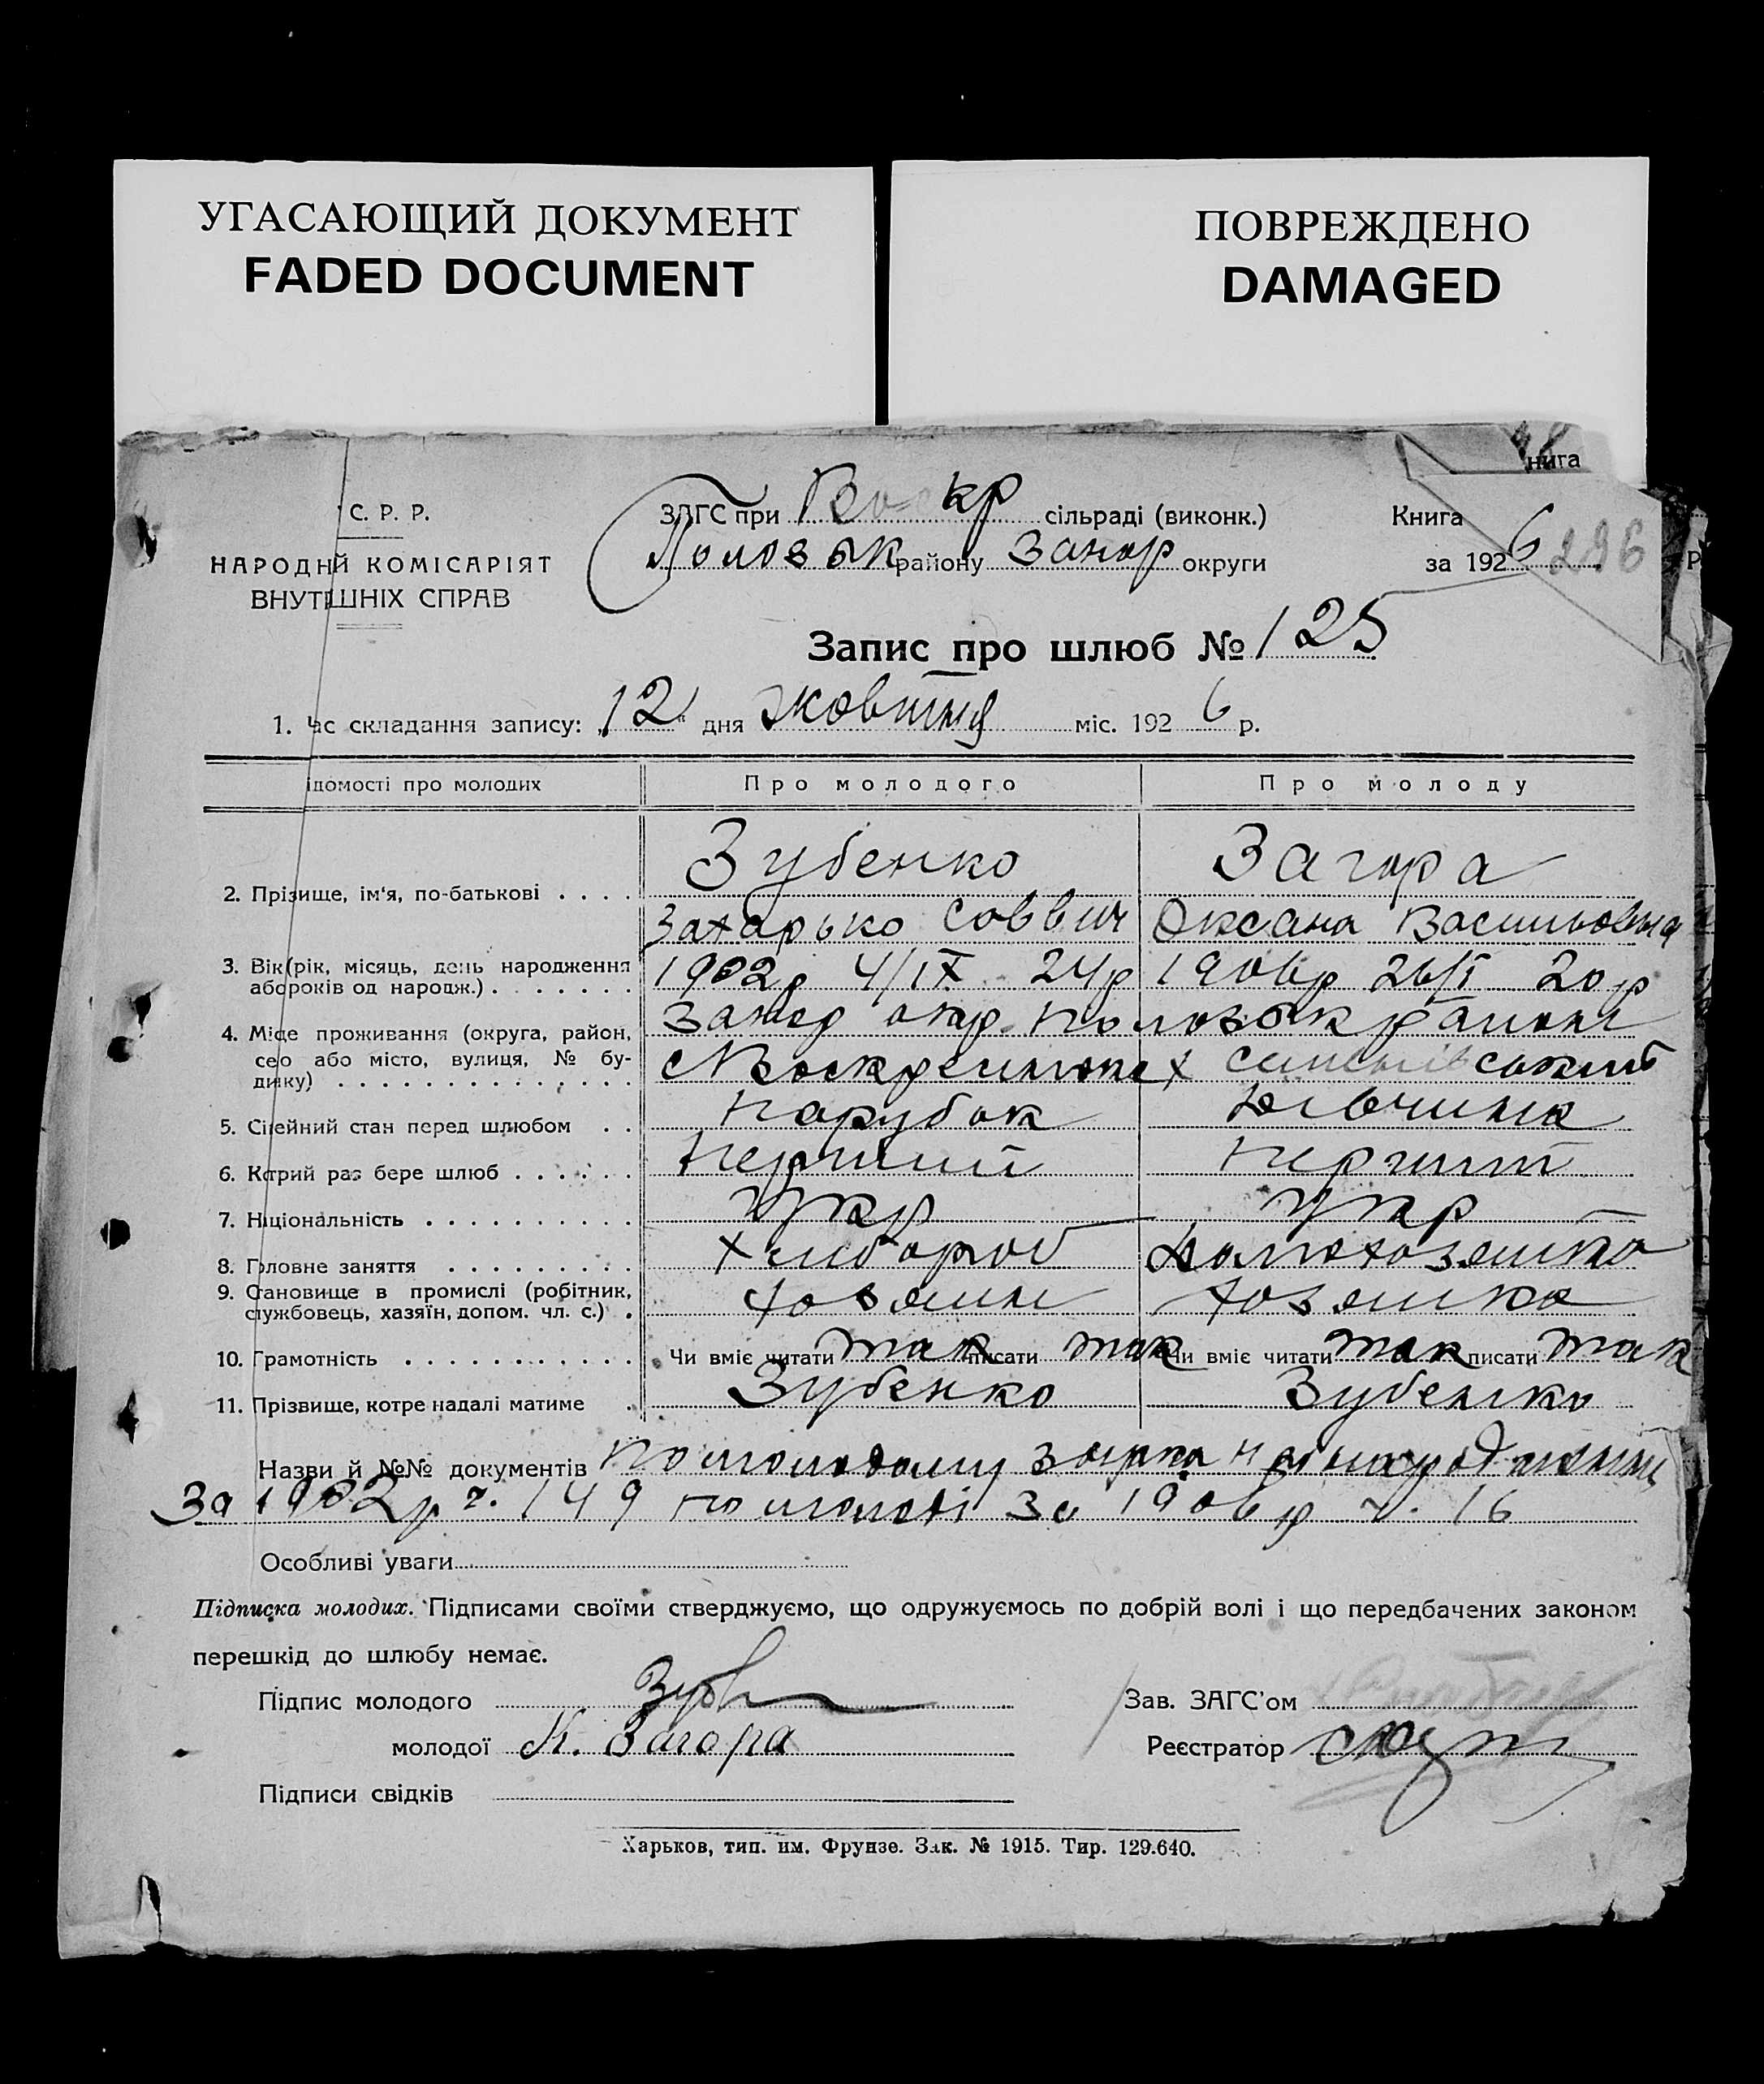 УГАСАЮЩИЙ ДОКУМЕНТ
FADED DOCUMENT
ПОВРЕЖДЕНО
DAMAGED
нига
С. Р. Р.
НАРОДНІЙ КОМІСАРІЯТ
ВНУТІШНІХ СПРАВ
ЗАГС при Воскр сільраді (виконк.)
Пологівськ району Запор округи
Книга
за 1926
286
Запис про шлюб № 125
1. Час складання запису: „12" дня жовтня міс. 1926 р.
ідомості про молодих Про молодого Про молоду
Зубенко Загора
2. Прізвище, ім'я, по-батькові
Захарько Саввич Оксана Васильовна
3. Вік (рік, місяць, день народження 1902р 4/IX 24р 1906р 26/I 20 р
або років од народж.)
4. Місце проживання (округа, район, Запор окр.
село або місто, вулиця, № бу-
динку)
5. Сімейний стан перед шлюбом Парубок Дівчина
6. Котрий раз бере шлюб Перший Перший
7. Національність Укр Укр
8. Головне заняття Хлібороб Домохозяйка
9. Становище в промислі (робітник, Хозяин Хозяйка
службовець, хазяїн, допом. чл. с.)
10. Грамотність Чи вміє читати так писати так Чи вміє читати так писати так
11. Прізвище, котре надалі матиме Зубенко Зубенко
Назви й №№ документів По молодому
За 1902р ч. 149 по молоді за 1906 р ч. 16
Особливі уваги
Підписка молодих. Підписами своїми стверджуємо, що одружуємось по добрій волі і що передбачених законом
перешкід до шлюбу немає.
Підпис молодого Зуб
Зав. ЗАГС'ом
молодої К. Загора
Реєстратор
Підписи свідків
Харьков, тип. им. Фрунзе. Зак. № 1915. Тир. 129.640.